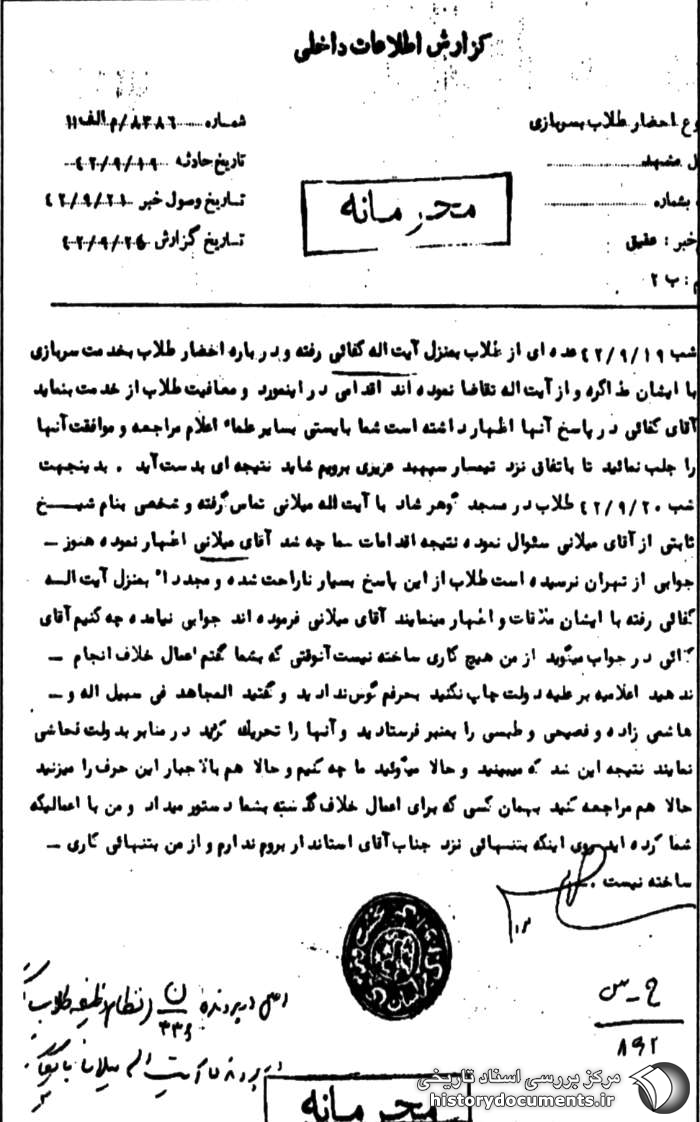 گزارش اطلاعات داخلی
وع احضار طلاب بسربازی
شماره ۸۳۸۶/م الف ۱۱
ل مشهد
تاریخ حادثه ۴۲/۹/۱۹
بشماره
تاریخ وصول خبر ۴۲/۹/۲۱
محرمانه
خبر : عقیق
تاریخ گزارش ۴۲/۹/۲۵
م : ب ۲
شب ۴۲/۹/۱۹ عده ای از طلاب بمنزل آیت اله کفائی رفته و درباره احضار طلاب بخدمت سربازی
با ایشان مذاکره و از آیت اله تقاضا نموده اند اقدامی در اینمورد و معافیت طلاب از خدمت بنماید
آقای کفائی در پاسخ آنها اظهار داشته است شما بایستی بسایر علماء اعلام مراجعه و موافقت آنها
را جلب نمائید تا باتفاق نزد تیمسار سپهبد عزیزی برویم شاید نتیجه ای بدست آید . بدینجهت
شب ۴۲/۹/۲۰ طلاب در مسجد گوهر شاد با آیت الله میلانی تماس گرفته و شخصی بنام شیخ
ثابتی از آقای میلانی سئوال نموده نتیجه اقدامات شما چه شد آقای میلانی اظهار نموده هنوز ـ
جوابی از تهران نرسیده است طلاب از این پاسخ بسیار ناراحت شده و مجدداً بمنزل آیت اله
کفائی رفته با ایشان ملاقات و اظهار مینمایند آقای میلانی فرموده اند جوابی نیامده چه کنیم آقای
کفائی در جواب میگوید از من هیچ کاری ساخته نیست آنوقتی که بشما گفتم اعمال خلاف انجام ـ
ندهید اعلامیه بر علیه دولت چاپ نکنید بحرفم گوش ندادید و گفتید المجاهد فی سبیل اله و ـ
هاشمی زاده و فصیحی و طبسی را بمنبر فرستادید و آنها را تحریک کردید در منابر بدولت فحاشی
نمایند نتیجه این شد که میبینید و حالا میگوئید ما چه کنیم و حالا هم بالاجبار این حرف را میزنید
حالا هم مراجعه کنید بهمان کسی که برای اعمال خلاف گذشته بشما دستور میداد و من با اعمالیکه
شما کرده اید روی اینکه بتنهائی نزد جناب آقای استاندار بروم ندارم و از من بتنهائی کاری ـ
ساخته نیست .
ح ـ س
۸۹۲
اصل در پرونده ن/۳۳۶ (نظام وظیفه طلاب)
در پرونده آیت اله میلانی بایگانی
محرمانه
مرکز بررسی اسناد تاریخی
historydocuments.ir